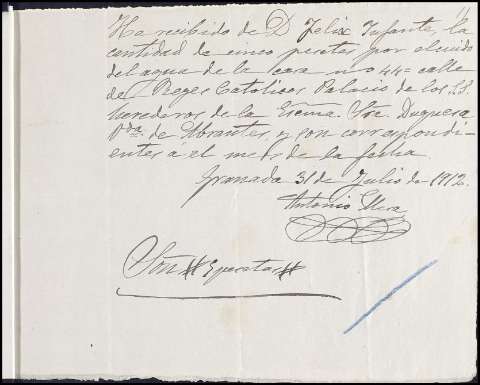 He recibido de D. Felix Infante, la
cantidad de cinco pesetas por el cuido
del agua de la casa nº 44= calle
de Reyes Catolicos Palacio de los SS.
herederos de la Excma. Sra. Duquesa
Vda. de Abrantes, y son correspondi-
entes á el mes de la fecha.
Granada 31 de Julio de 1912.
Antonio
Son # 5 pesetas #